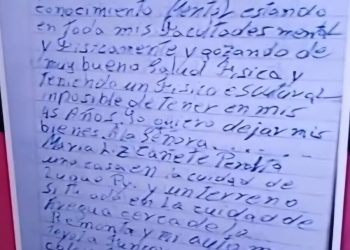 conocimiento estando
en toda mis facultades mental
y Fisicamente y gozando de
muy buena salud Fisica y
teniendo un Fisico escultural
inposible de tener en mis
45 Años, yo quiero dejar mis
bienes. A la señora......
Maria Liz Cañete
una casa en la cuidad de
Luque Py. y un terreno
si tu ado en la cuidad de
Aregua cerca de la
Remonta y mi auto